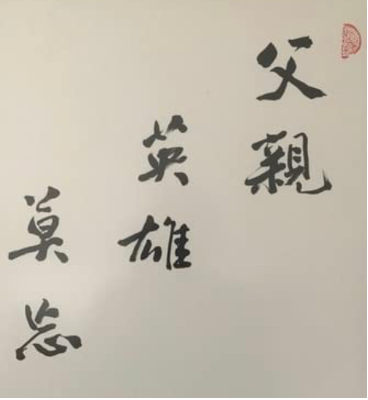 父親
英雄
莫忘